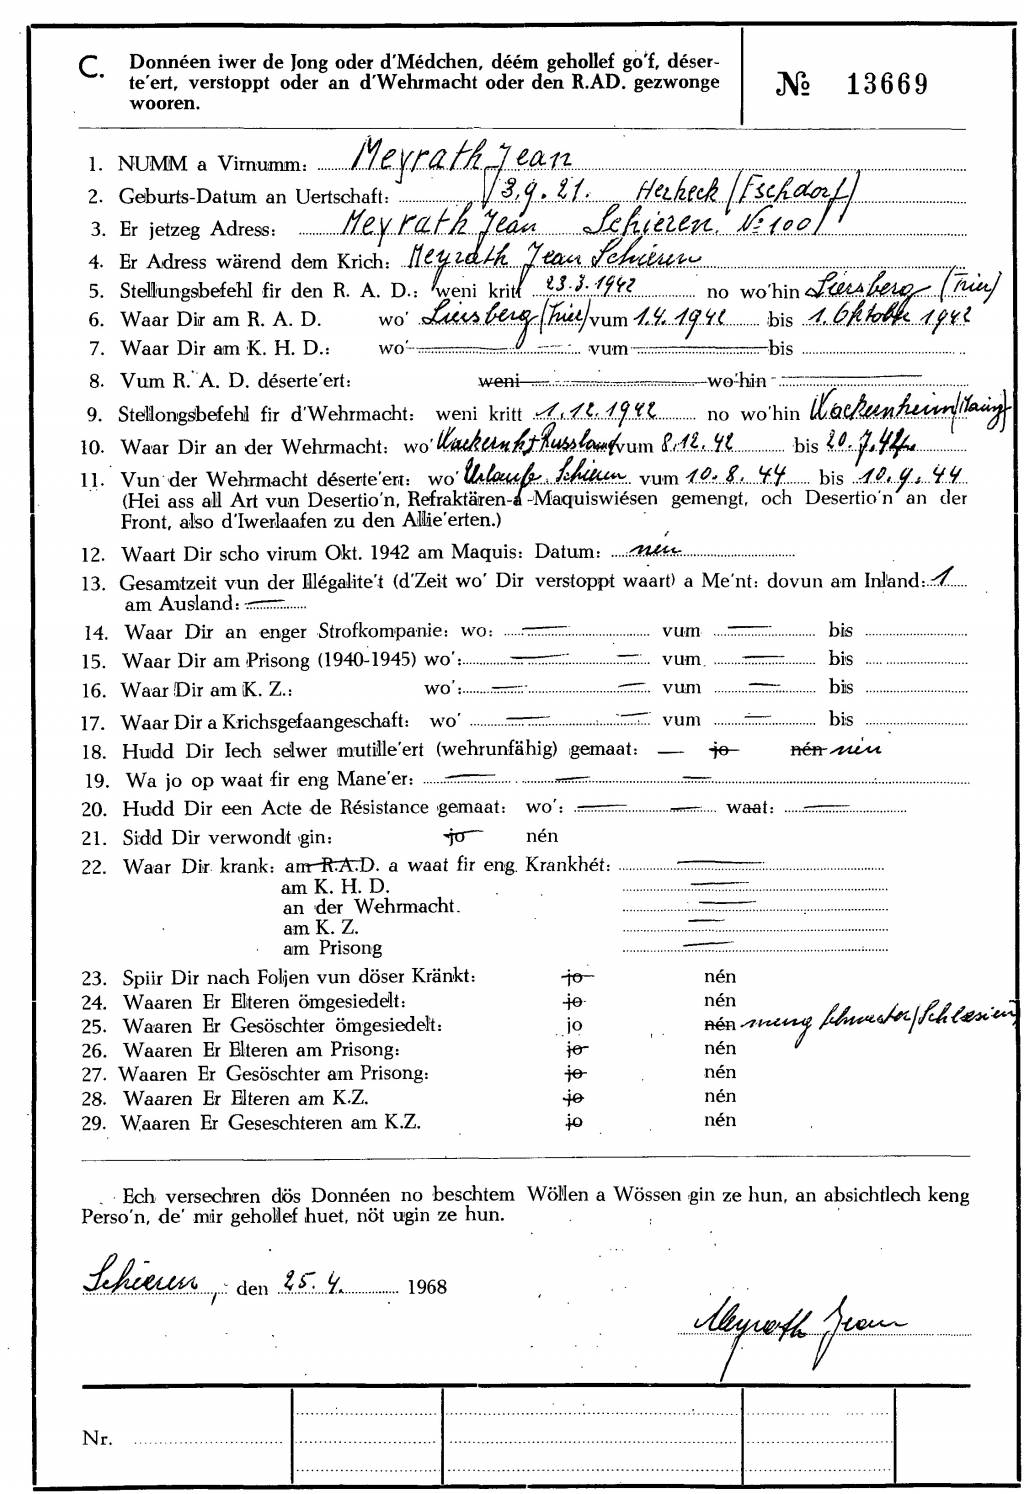 C. Donnéen iwer de Jong oder d'Médchen, déém gehollef go'f, déser-
te'ert, verstoppt oder an d'Wehrmacht oder den R.AD. gezwonge
wooren.
№ 13669
1. NUMM a Virnumm: Meyrath Jean
2. Geburts-Datum an Uertschaft: 13.9.21. Herheck (Eschdorf)
3. Er jetzeg Adress: Meyrath Jean Schieren. № 100
4. Er Adress wärend dem Krich: Meyrath Jean Schieren
5. Stellungsbefehl fir den R. A. D.: weni kritt 23.3.1942 no wo'hin Liersberg (Trier)
6. Waar Dir am R. A. D. wo' Liersberg (Trier) vum 1.4.1942 bis 1. Oktober 1942
7. Waar Dir am K. H. D.: wo' vum bis
8. Vum R. A. D. déserte'ert: weni wo'hin
9. Stellongsbefehl fir d'Wehrmacht: weni kritt 1.12.1942 no wo'hin Wackernheim (Mainz)
10. Waar Dir an der Wehrmacht: wo' Wackernh + Russland vum 8.12.42 bis 20.7.44.
11. Vun der Wehrmacht déserte'ert: wo' Urlaub Schieren vum 10.8.44 bis 10.9.44
(Hei ass all Art vun Desertio'n, Refraktären-a -Maquiswiésen gemengt, och Desertio'n an der
Front, also d'Iwerlaafen zu den Allie'erten.)
12. Waart Dir scho virum Okt. 1942 am Maquis: Datum: nén
13. Gesamtzeit vun der Illégalite't (d'Zeit wo' Dir verstoppt waart) a Me'nt: dovun am Inland: 1
am Ausland:
14. Waar Dir an enger Strofkompanie: wo: vum bis
15. Waar Dir am Prisong (1940-1945) wo': vum bis
16. Waar Dir am K. Z.: wo': vum bis
17. Waar Dir a Krichsgefaangeschaft: wo' vum bis
18. Hudd Dir Iech selwer mutille'ert (wehrunfähig) gemaat: jo nén nén
19. Wa jo op waat fir eng Mane'er:
20. Hudd Dir een Acte de Résistance gemaat: wo': waat:
21. Sidd Dir verwondt gin: jo nén
22. Waar Dir krank: am R.A.D. a waat fir eng Krankhét:
am K. H. D.
an der Wehrmacht.
am K. Z.
am Prisong
23. Spiir Dir nach Foljen vun döser Kränkt: jo nén
24. Waaren Er Elteren ömgesiedelt: jo nén
25. Waaren Er Gesöschter ömgesiedelt: jo nén meng Schwester (Schlesien)
26. Waaren Er Elteren am Prisong: jo nén
27. Waaren Er Gesöschter am Prisong: jo nén
28. Waaren Er Elteren am K.Z. jo nén
29. Waaren Er Geseschteren am K.Z. jo nén
Ech versechren dös Donnéen no beschtem Wöllen a Wössen gin ze hun, an absichtlech keng
Perso'n, de' mir gehollef huet, nöt ugin ze hun.
Schieren, den 25.4. 1968
Meyrath Jean
Nr.